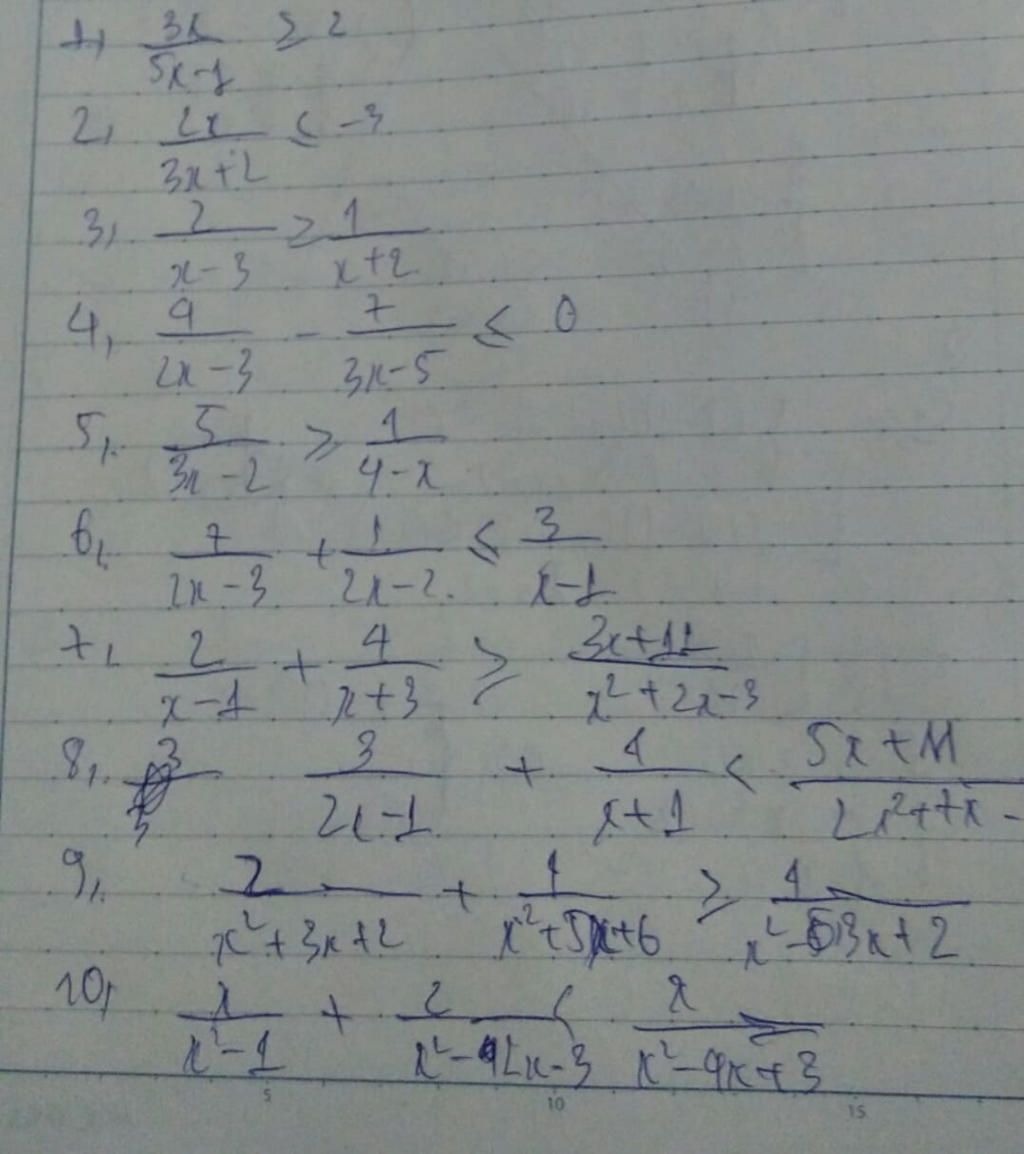 1, 3x/(5x-1) ≥ 2
2, 2x/(3x+2) < -3
3, 2/(x-3) ≥ 1/(x+2)
4, 9/(2x-3) - 7/(3x-5) ≤ 0
5, 5/(3x-2) ≥ 1/(4-x)
6, 7/(2x-3) + 1/(2x-2) ≤ 3/(x-1)
7, 2/(x-1) + 4/(x+3) ≥ (3x+11)/(x²+2x-3)
8, 3/(2x-1) + 4/(x+1) < (5x+11)/(2x²+7x-
9, 2/(x²+3x+2) + 1/(x²+5x+6) ≥ 1/(x²-3x+2)
10, x/(x²-1) + 2/(x²-2x-3) < x/(x²-4x+3)
5 10 15